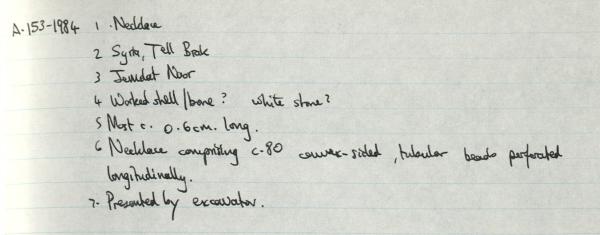 A.153-1984 1 .Necklace
2 Syria, Tell Brak
3 Jemdat Nasr
4 Worked shell/bone? white stone?
5 Most c. 0.6cm. long.
6 Necklace comprising c.80 convex-sided, tubular beads perforated
longitudinally.
7. Presented by excavator.